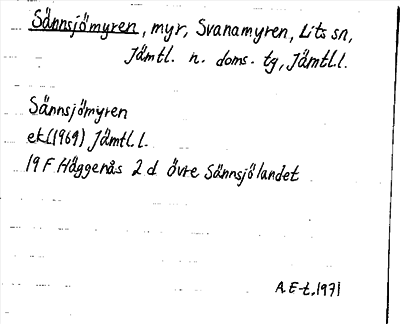 Sännsjömyren, myr, Svanamyren, Lits sn,
Jämtl. n. doms. tg, Jämtl.l.
Sännsjömyren
ek(1969) Jämtl.l.
19 F Häggenås 2 d Övre Sännsjölandet
A.E-t.1971